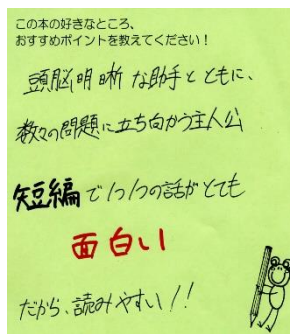 この本の好きなところ、
おすすめポイントを教えてください！
頭脳明晰な助手とともに、
数々の問題に立ち向かう主人公
短編で1つ1つの話がとても
面白い
だから、読みやすい!!